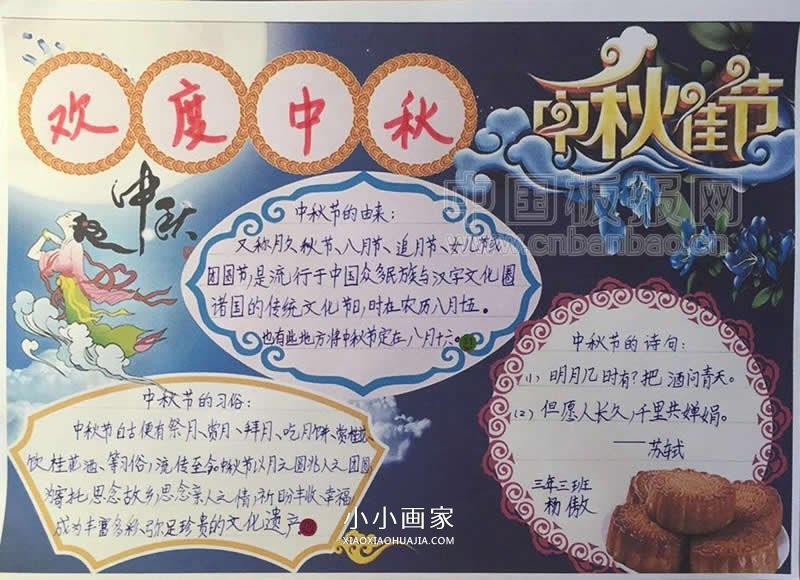 欢度中秋
中秋佳节
中秋
中国板报网
www.cnbanbao.cn
中秋节的由来:
又称月夕秋节、八月节、追月节、女儿节或
团圆节,是流行于中国众多民族与汉字文化圈
诸国的传统文化节日,时在农历八月十五。
也有些地方将中秋节定在八月十六。
中秋节的诗句:
(1) 明月几时有?把酒问青天。
(2) 但愿人长久,千里共婵娟。
——苏轼
三年三班
杨傲
中秋节的习俗:
中秋节自古便有祭月、赏月、拜月、吃月饼、赏桂花、
饮桂花酒、等习俗,流传至今。中秋节以月之圆兆人之团圆
为寄托思念故乡,思念亲人之情,祈盼丰收、幸福
成为丰富多彩、弥足珍贵的文化遗产。
小小画家
XIAOXIAOHUAJIA.COM